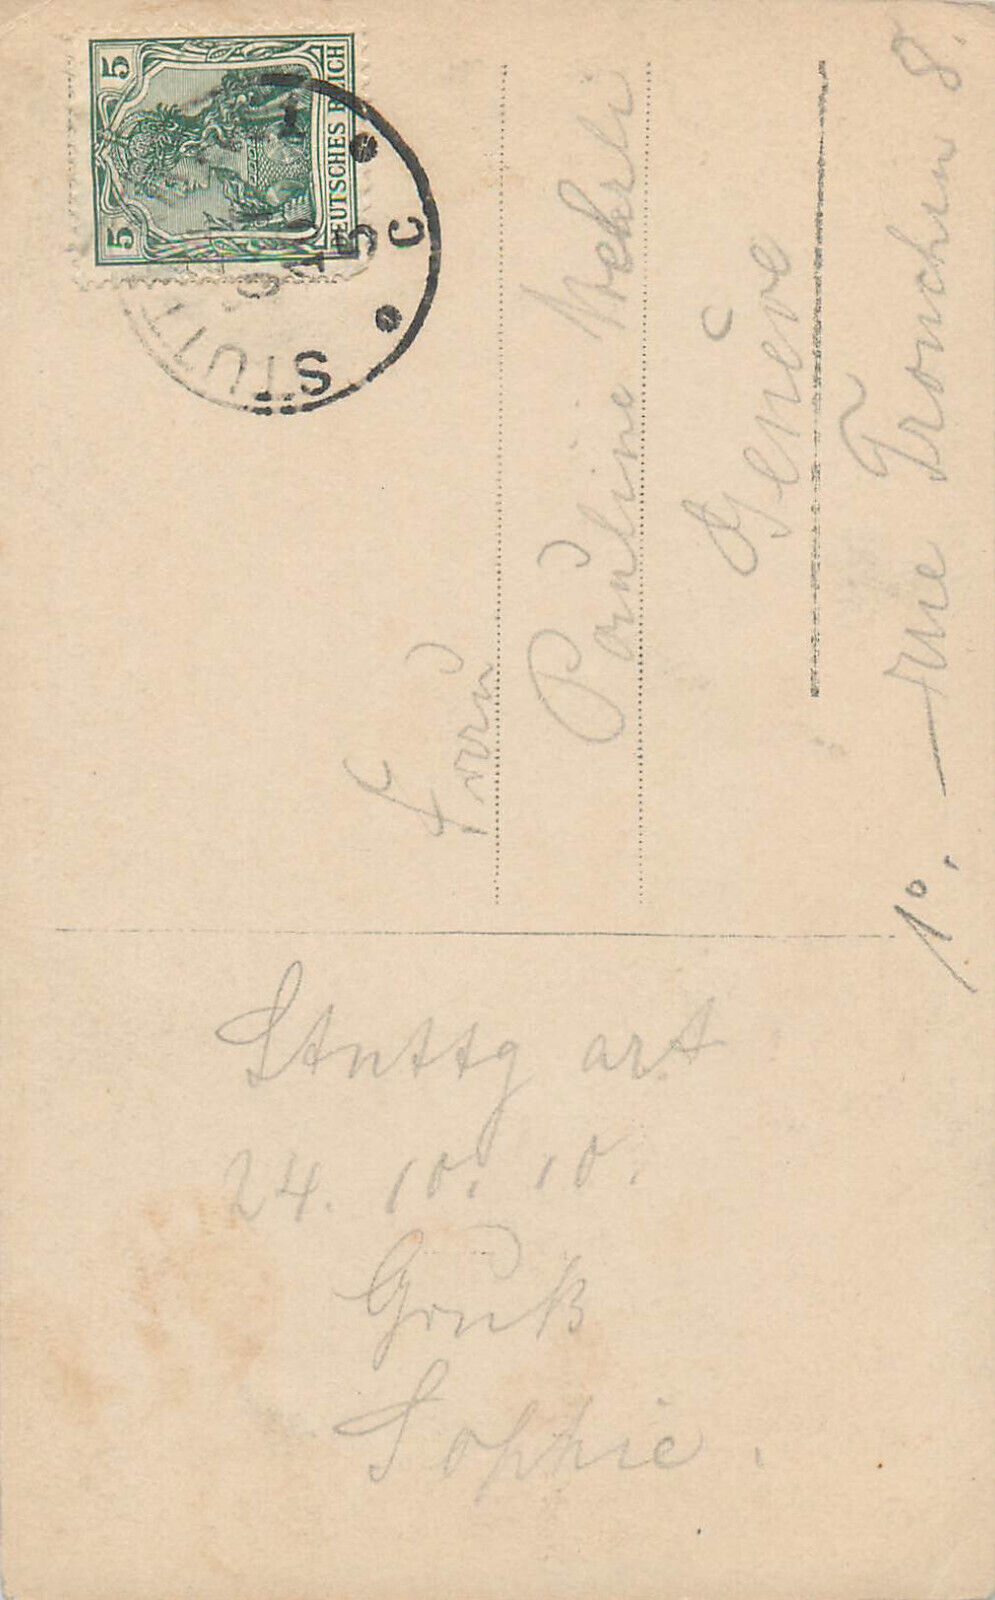 Stuttgart
24. 10. 10.
Gruß
Sophie.
5 DEUTSCHES REICH 5
STUTT
C
Frau
Pauline Wehrli
Genève
1°. — rue Tronchin 8.